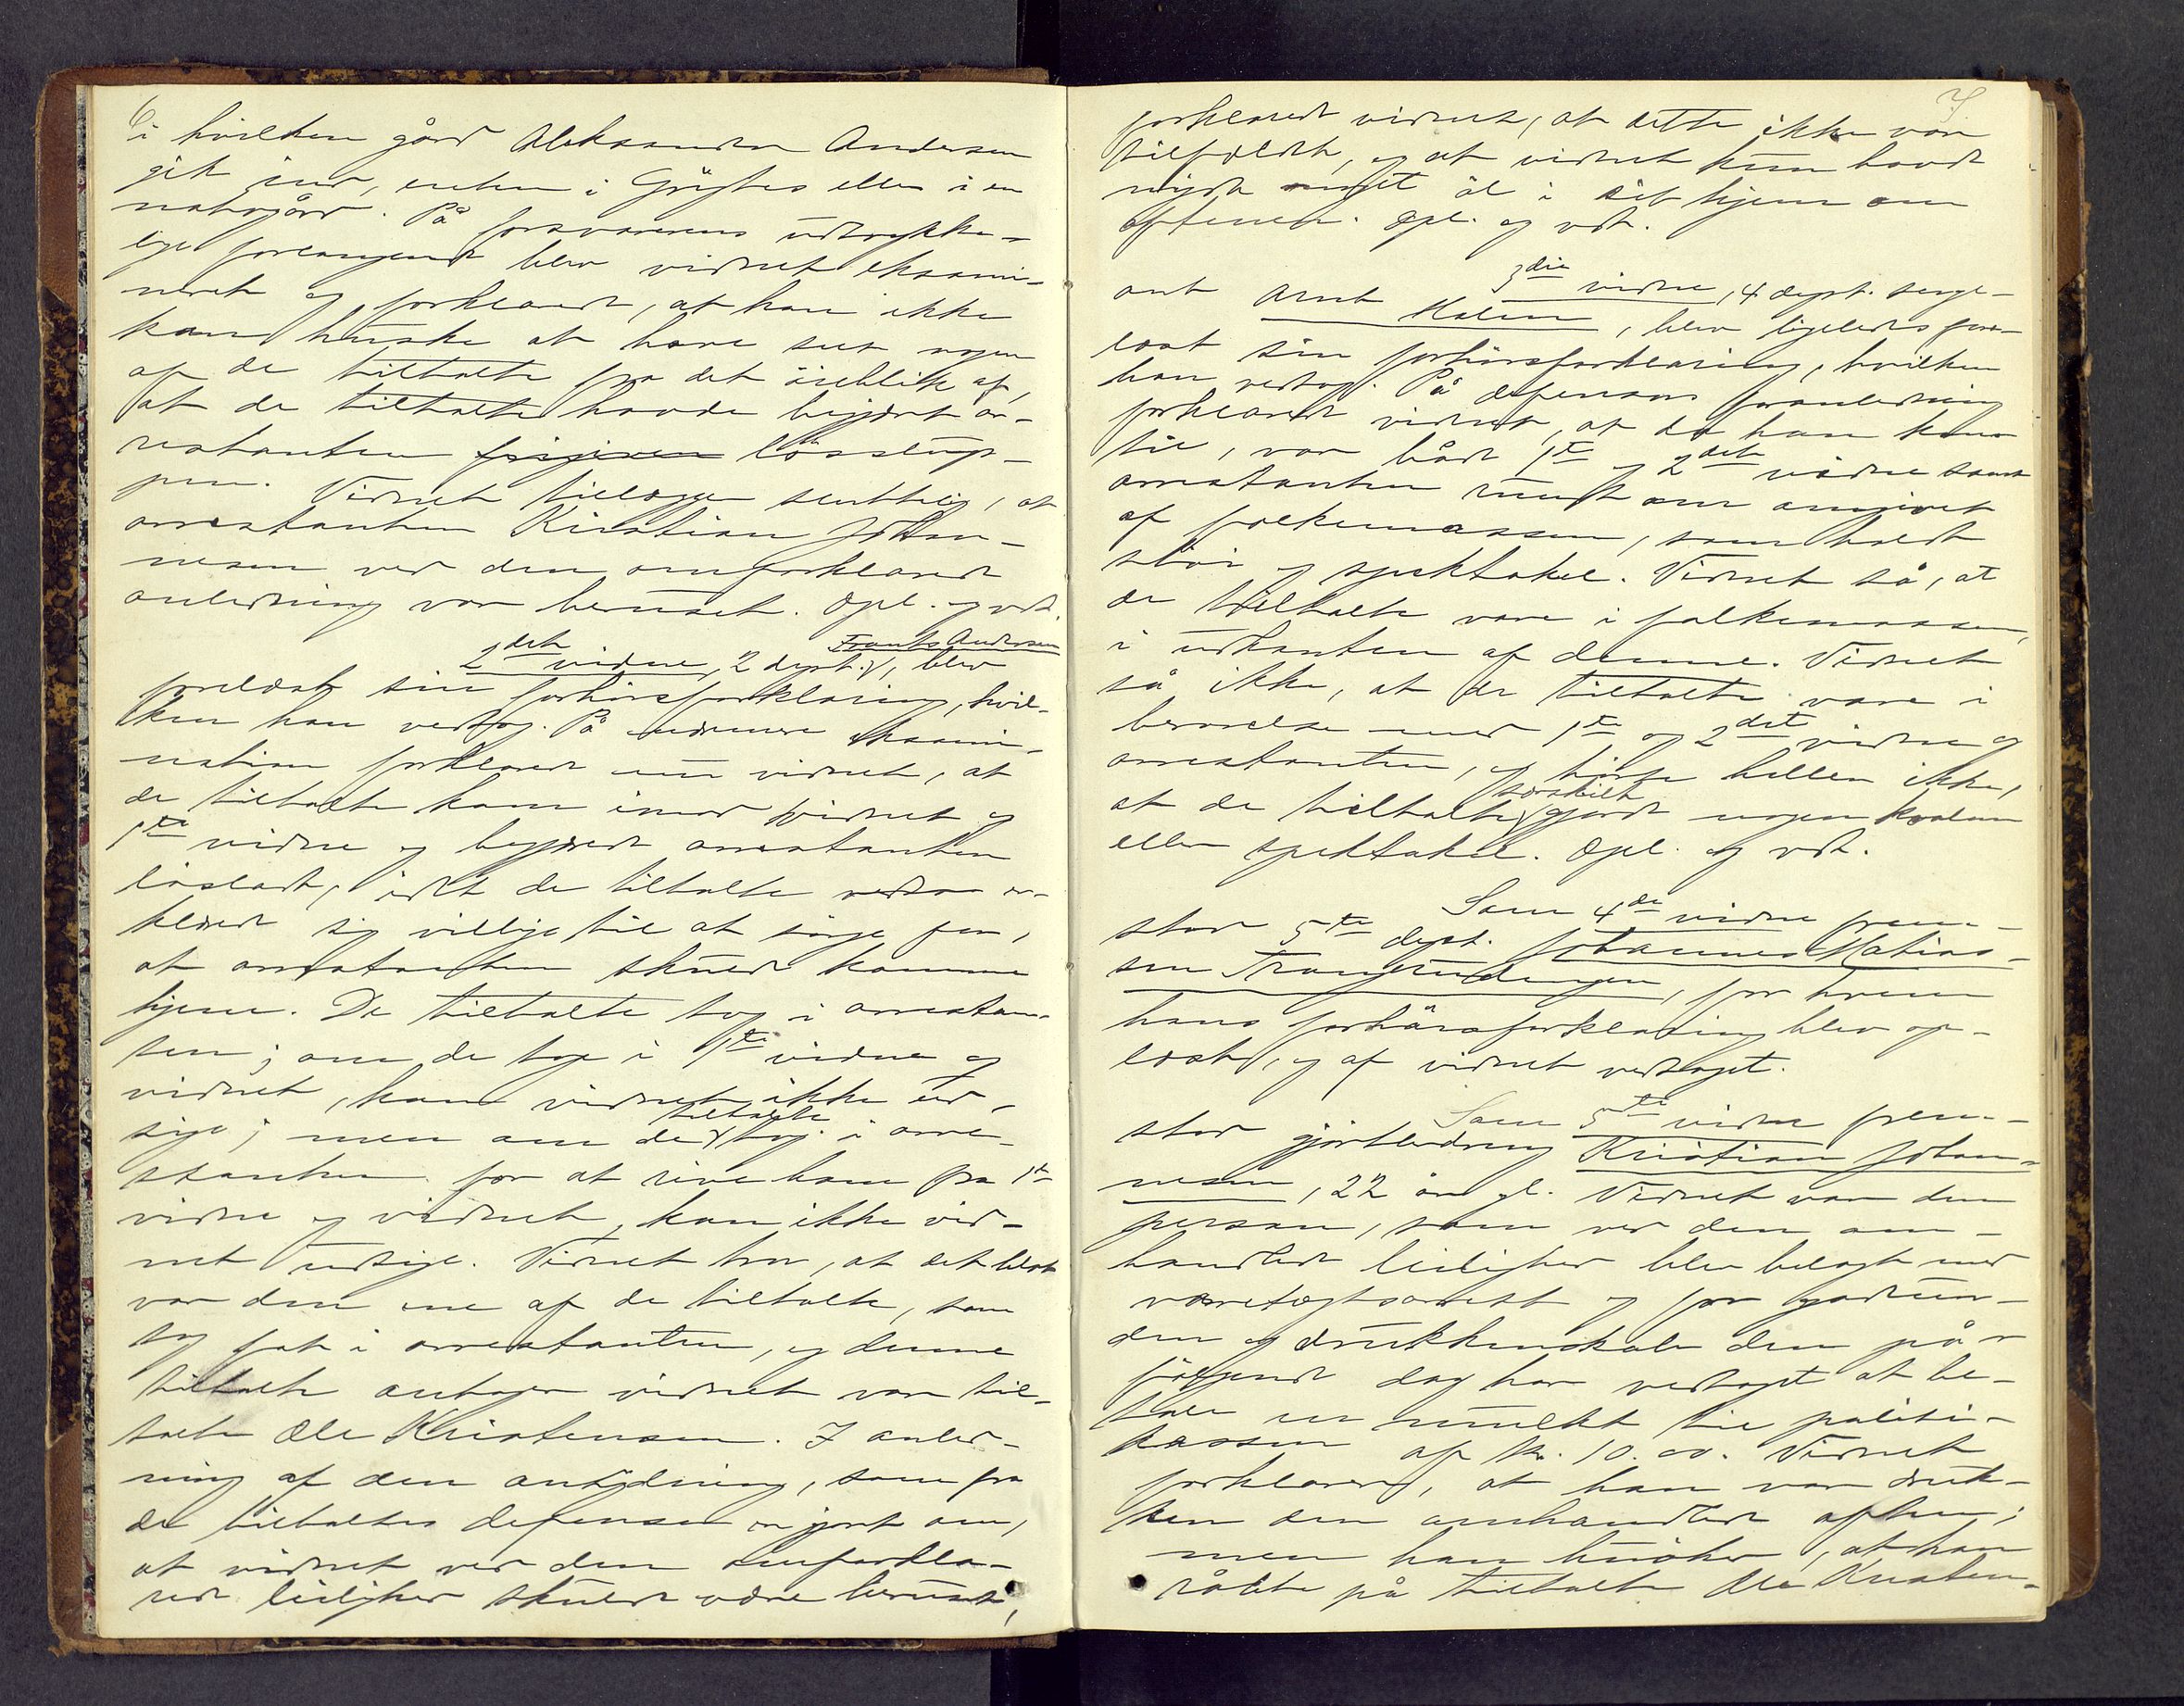 6
i hvilken gård Aleksander Andersen
gik ind, enten i Gröftes eller i en
nabogård. På forsvarerens udtrykke-
lige forlangende blev vidnet eksami-
neret og forklared, at han ikke
kan huske at have seet nogen
af de tiltalte fra det öieblik af,
at de tiltalte havde begjæret ar-
restanten frigiven lössslup-
pen. Vidnet tillægger sluttelig, at
arrestanten Kristian Johan-
nesen ved den omforklarede
anledning var beruset. Opl. og vdt.
2det vidne, 2 dept. Frants Andersen, blev
forelæst sin forhörsforklaring, hvil-
ken han vedtog. På nærmere eksami-
nation forklared nu vidnet, at
de tiltalte kom imod vidnet og
1ste vidne og begjæred arrestanten
lösladt, idet de tiltalte vedson er-
klæred sig villige til at sörge for,
at arrestanten skulde komme
hjem. De tiltalte tog i arrestan-
ten; om de toge i 1ste vidne og
vidnet, kan vidnet ikke ud-
sige; men om de tiltalte tog i arre-
stanten for at rive ham fra 1ste
vidne og vidnet, kan ikke vid-
net udsige. Vidnet tror, at det blot
var den ene af de tiltalte, som
tog fat i arrestanten, og denne
tiltalte antager vidnet var til-
talte Ole Kristensen. I anled-
ning af den antydning, som fra
de tiltaltes defensor er gjort om,
at vidnet ved den omforkla-
rede leilighed skulde være beruset,
7
forklared vidnet, at dette ikke var
tilfældet, og at vidnet kun havde
nydt noget öl i sit hjem om
aftenen. Opl. og vdt.
3die vidne, 4 dept. serge-
ant Arnt Holm, blev ligeledes fore-
læst sin forhörsforklaring, hvilken
han vedtog. På defensors foranledning
forklared vidnet, at da han kom
til, var både 1ste og 2det vidne samt
arrestanten rundt om omgivet
af folkemassen, som holdt
stöi og spektakel. Vidnet så, at
de tiltalte vare i folkemassen,
i udkanten af denne. Vidnet
så ikke, at de tiltalte vare i
berørelse med 1ste og 2det vidne og
arrestanten, og hörte heller ikke,
at de tiltalte særskilt gjorde nogen kvalm
eller spektakel. Opl. og vdt.
Som 4de vidne frem-
stod 5te dept. Johannes Matias-
sen Trangrudengen, for hvem
hans forhörsforklaring blev op-
læst, og af vidnet vedtaget.
Som 5te vidne frem-
stod gjörtlerdreng Kristian Johan-
nesen, 22 år gl. Vidnet var den
person, som ved den om-
handlede leilighed blev belagt med
varetægtsarrest og for gadeuor-
den og drukkenskab den på-
fölgende dag har vedtaget at be-
tale en mulkt til politi-
kassen af kr. 10.00. Vidnet
forklarer, at han var druk-
ken den omhandlede aften;
men han husker, at han
råbte på tiltalte Ole Kristen-